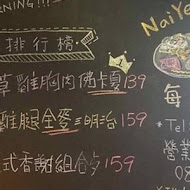 NING!!!
排行榜
1
草雞胸肉佛卡夏139
雞腿全麥三明治159
式香謝組合159
NaiYe
每
*Tel
營業
08